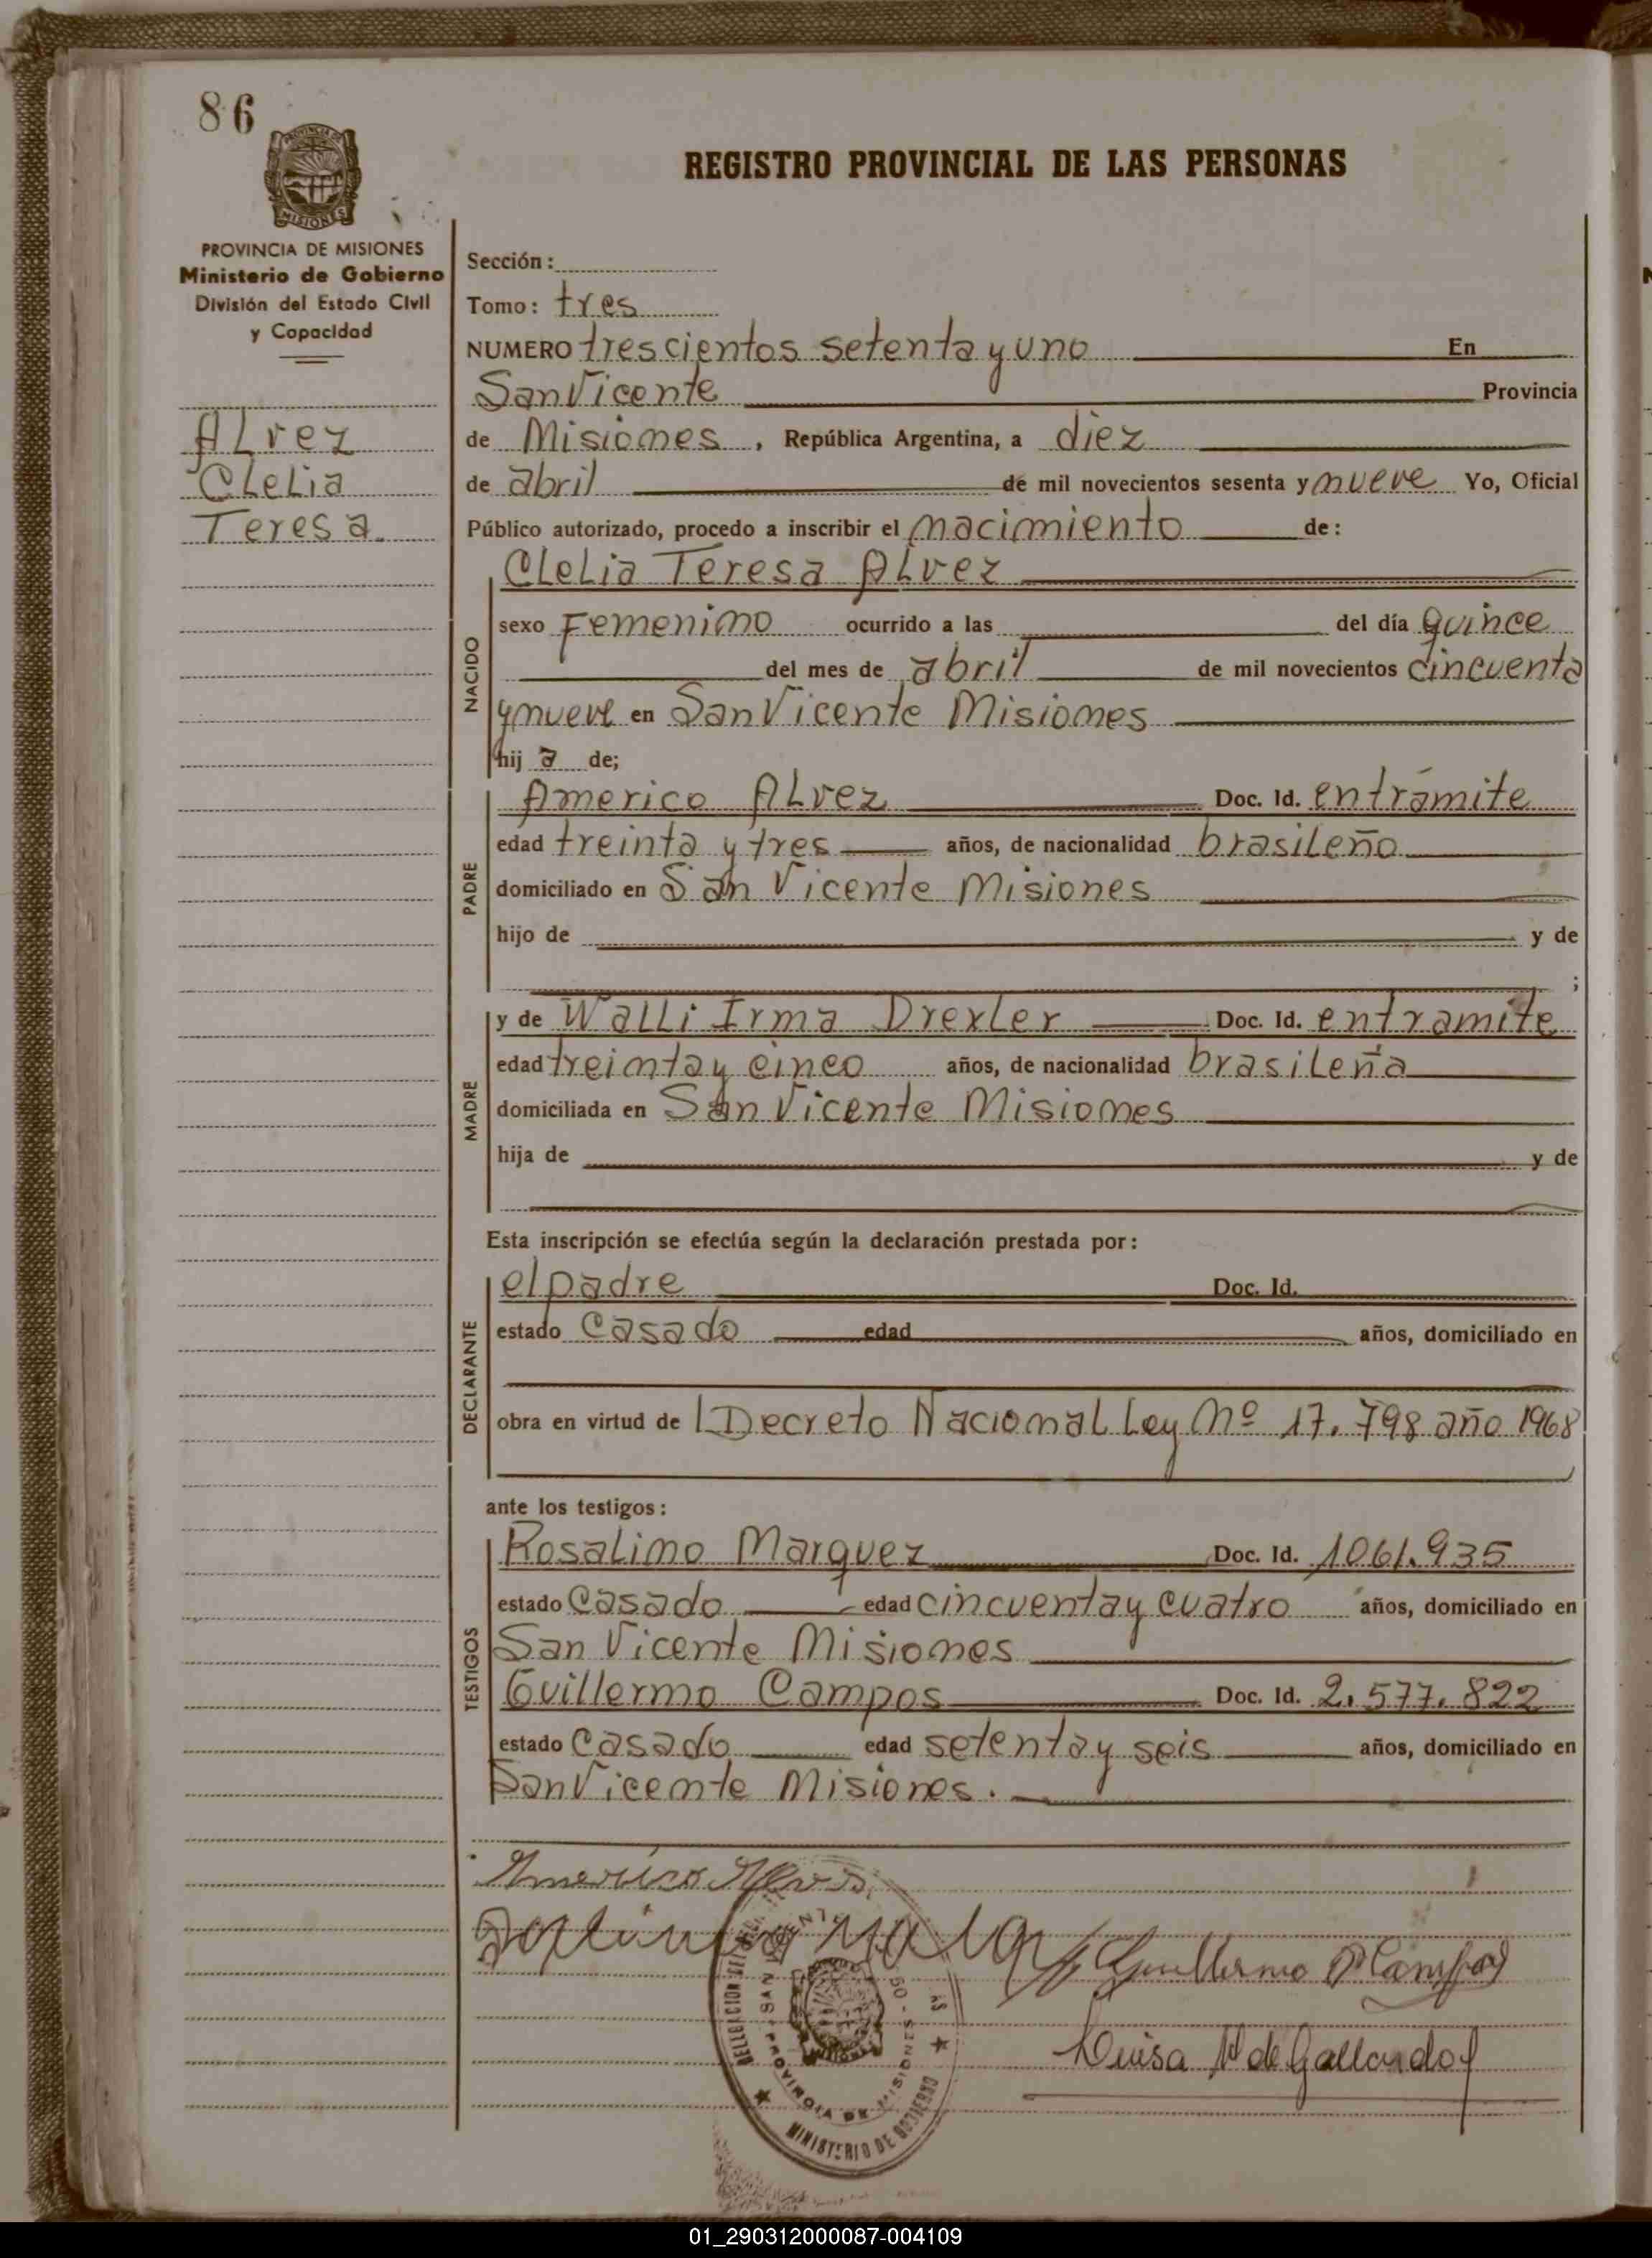 86
REGISTRO PROVINCIAL DE LAS PERSONAS
PROVINCIA DE MISIONES
Ministerio de Gobierno
División del Estado Civil
y Capacidad
Alvez
Clelia
Teresa.
Sección:
Tomo: tres
NUMERO trescientos setenta y uno En
San Vicente Provincia
de Misiones, República Argentina, a diez
de abril de mil novecientos sesenta y nueve Yo, Oficial
Público autorizado, procedo a inscribir el nacimiento de:
NACIDO
Clelia Teresa Alvez
sexo Femenino ocurrido a las del día quince
del mes de abril de mil novecientos cincuenta
y nueve en San Vicente Misiones
hij a de;
PADRE
Americo Alvez Doc. Id. en trámite
edad treinta y tres años, de nacionalidad brasileño
domiciliado en San Vicente Misiones
hijo de y de
;
MADRE
y de Walli Irma Drexler Doc. Id. en tramite
edad treinta y cinco años, de nacionalidad brasileña
domiciliada en San Vicente Misiones
hija de y de
Esta inscripción se efectúa según la declaración prestada por:
DECLARANTE
el padre Doc. Id.
estado Casado edad años, domiciliado en
obra en virtud de Decreto Nacional Ley Nº 17.798 año 1968
ante los testigos:
TESTIGOS
Rosalino Marquez Doc. Id. 1061.935
estado Casado edad cincuenta y cuatro años, domiciliado en
San Vicente Misiones
Guillermo Campos Doc. Id. 2.577.822
estado Casado edad setenta y seis años, domiciliado en
San Vicente Misiones.
Americo Alves
Guillermo Campos
Luisa de Gallardo
SAN VICENTE
PROVINCIA DE MISIONES
MINISTERIO DE GOBIERNO
01_290312000087-004109